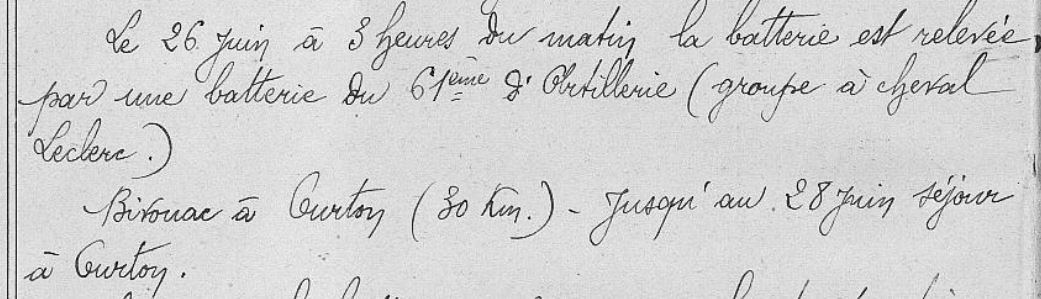 Le 26 Juin à 3 heures du matin la batterie est relevée,
par une batterie du 61ème d'Artillerie (groupe à cheval
Leclerc.)
Bivouac à Curton (30 Km.) - Jusqu'au 28 Juin séjour
à Curton.